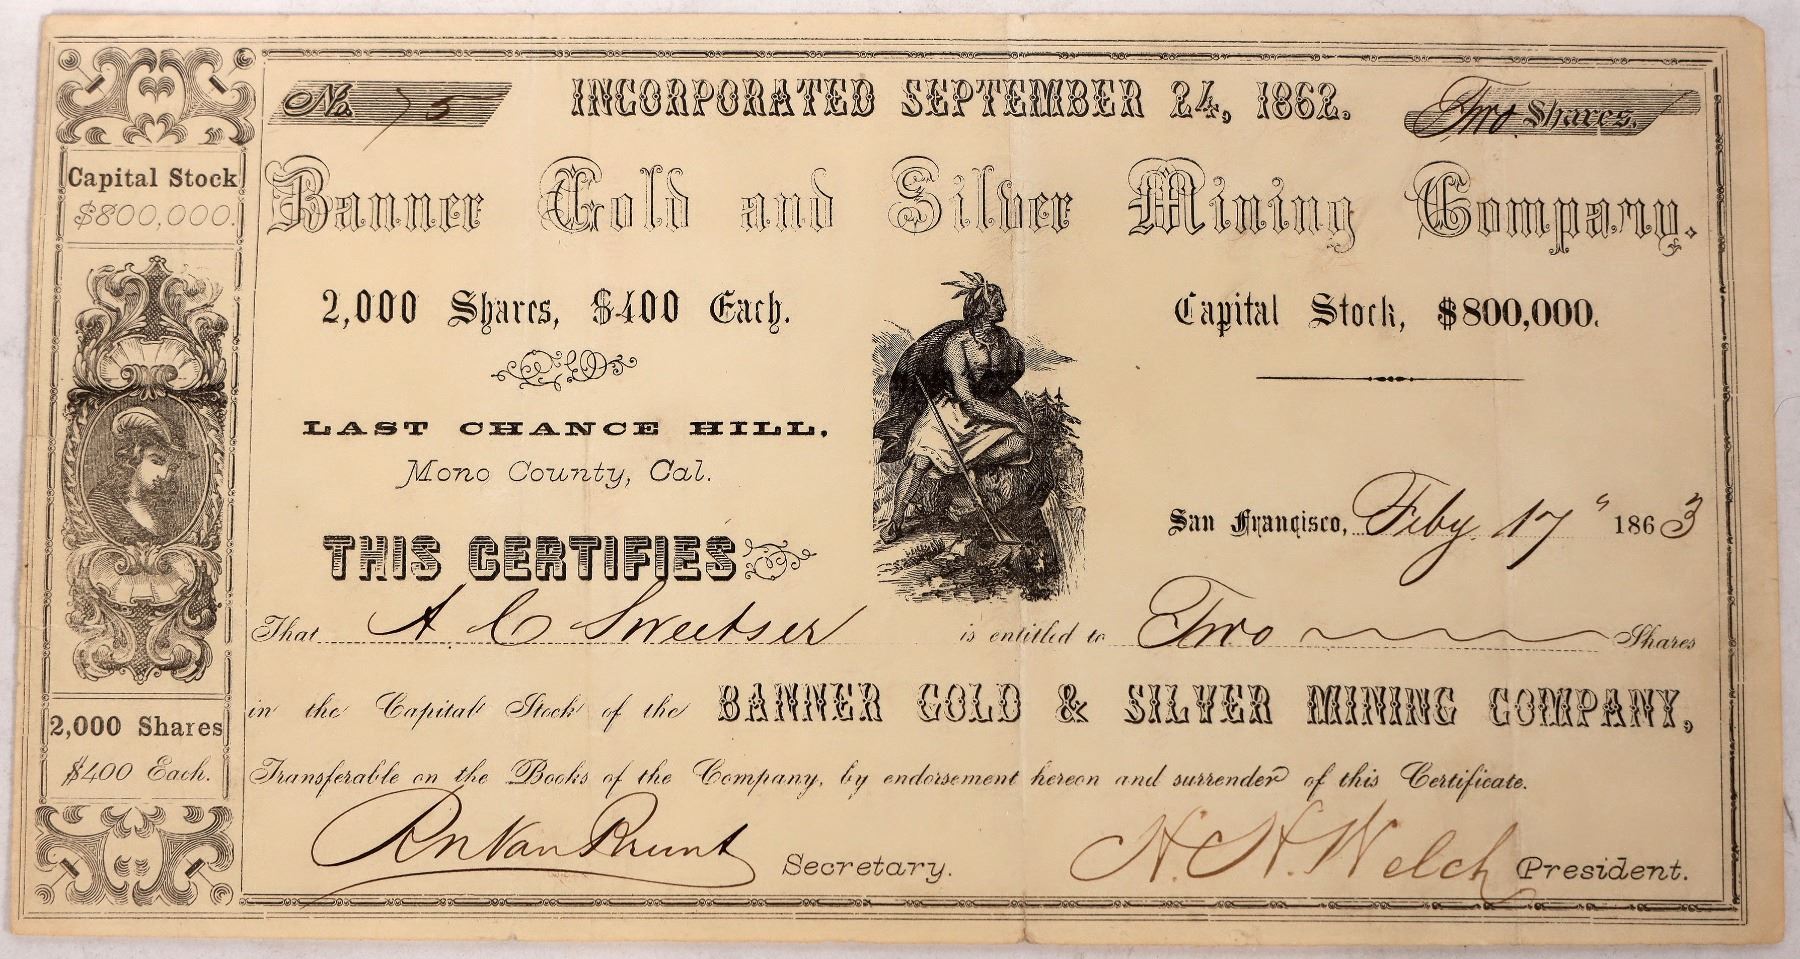 No. 75
INCORPORATED SEPTEMBER 24, 1862.
Two Shares.
Capital Stock
$800,000.
Banner Gold and Silver Mining Company.
2,000 Shares, $400 Each.
Capital Stock, $800,000.
LAST CHANCE HILL,
Mono County, Cal.
San Francisco, Feby. 17" 1863
THIS CERTIFIES
That A C Sweetser is entitled to Two Shares
in the Capital Stock of the BANNER GOLD & SILVER MINING COMPANY,
2,000 Shares
$400 Each.
Transferable on the Books of the Company, by endorsement hereon and surrender of this Certificate.
Van Brunt Secretary.
H. H. Welch President.